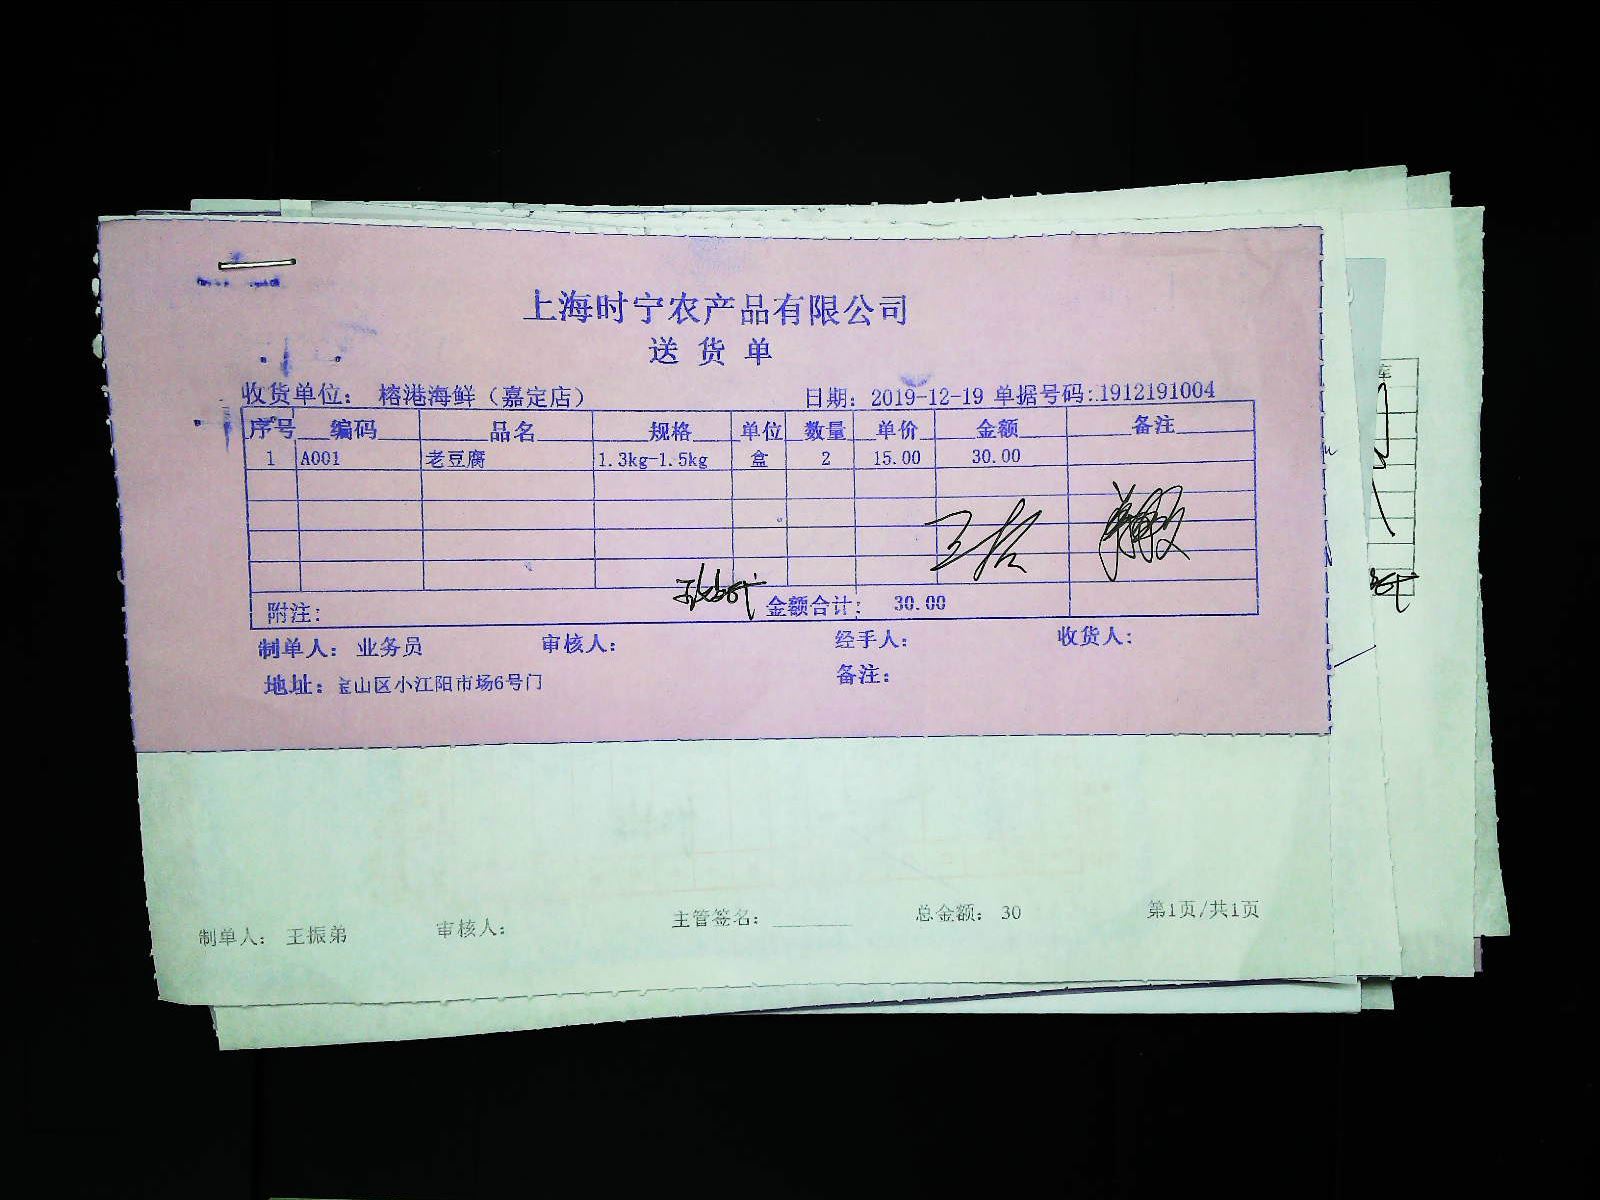 上海时宁农产品有限公司
送货单
收货单位: 榕港海鲜（嘉定店） 日期: 2019-12-19 单据号码:1912191004
序号 编码 品名 规格 单位 数量 单价 金额 备注
1 A001 老豆腐 1.3kg-1.5kg 盒 2 15.00 30.00
附注: 金额合计: 30.00
制单人: 业务员 审核人: 经手人: 收货人:
地址: 宝山区小江阳市场6号门 备注:
制单人: 王振弟 审核人: 主管签名: 总金额: 30 第1页/共1页